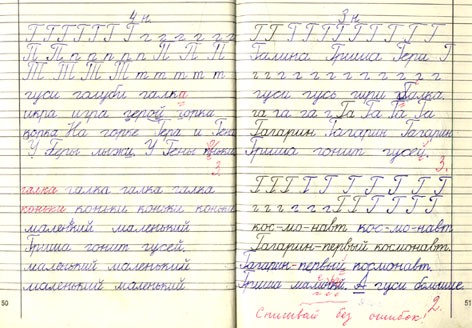 4 н
Г Г Г Г Г Г Г г г г г г г
П П п п п п п П П П
Т Т Т Т т т т т т
гуси голуби галка
икра игра герой горка
горка На горке Гера и Гена
У Геры лыжи. У Гены коньки
3.
галка галка галка галка
коньки коньки коньки коньки
маленький маленький
Гриша гонит гусей.
маленький маленький
маленький маленький
50
3 н
Г Г Г Г Г Г Г Г Г Г
Галина Гриша Гера Г
г г г г г г г г г г г
гуси гусь гири Галка.
га га га г Га Га Га Га
Гагарин Гагарин Гагарин
Гриша гонит гусей.
3.
Г Г Г Г Г Г Г Г Г Г
г г г г г г Г Г Г Г Г
кос-мо-навт кос-мо-навт
Гагарин-первый космонавт.
Гагарин-первый космонавт.
Гриша А гуси большие.
2.
Списывай без ошибок!
51